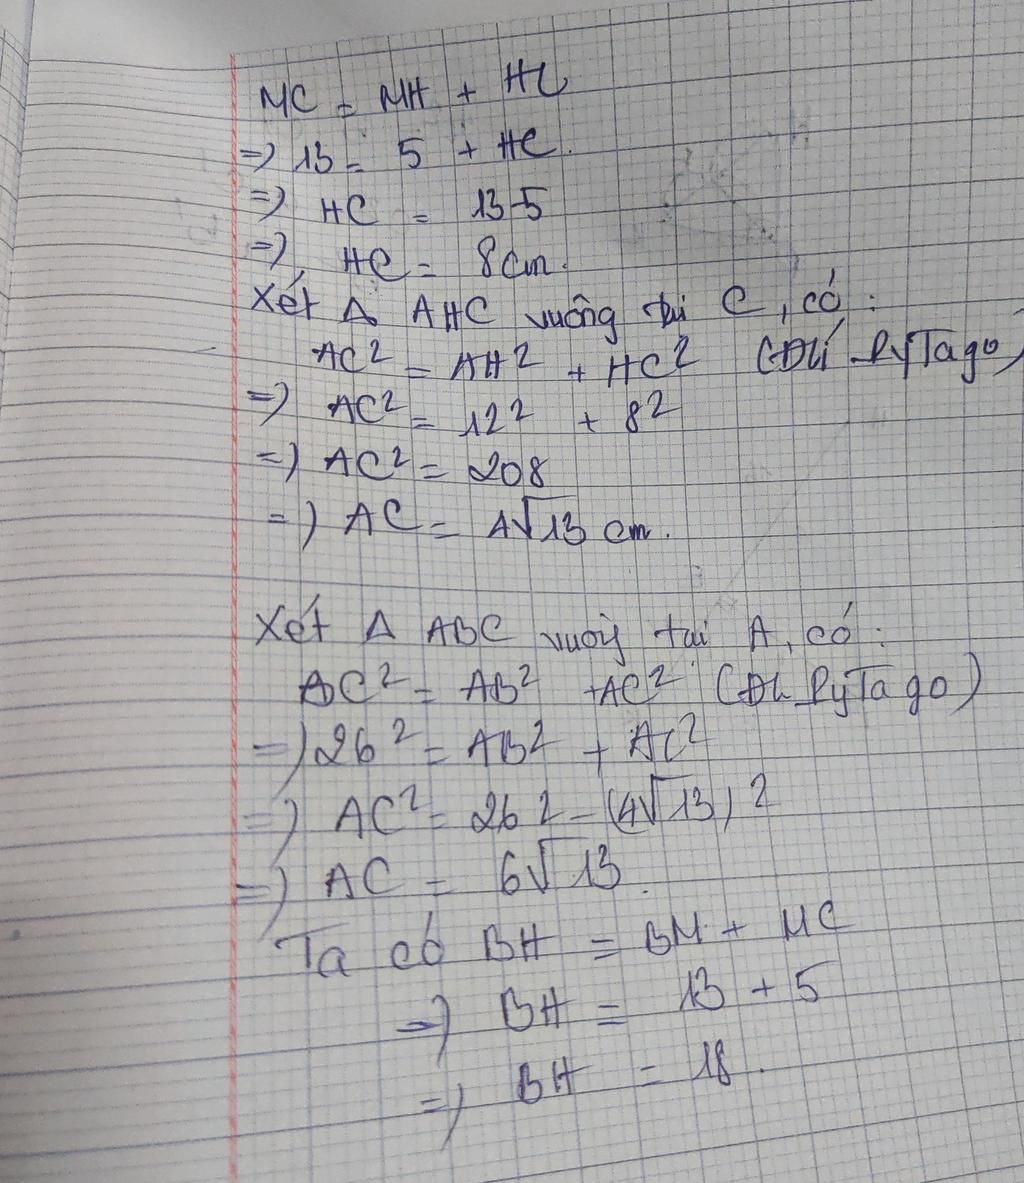 MC = MH + HC
=) 13 = 5 + HC.
=) HC = 13-5
=) HC = 8cm.
Xét Δ AHC vuông tại C, có:
AC² = AH² + HC² (ĐLí PyTago)
=) AC² = 12² + 8²
=) AC² = 208
=) AC = 4√13 cm.
Xét Δ ABC vuông tại A, có:
BC² = AB² + AC² (ĐL PyTago)
=) 26² = AB² + AC²
=) AC² = 26² - (4√13)²
=) AC = 6√13.
Ta có BH = BM + MC
=) BH = 13 + 5
=) BH = 18.